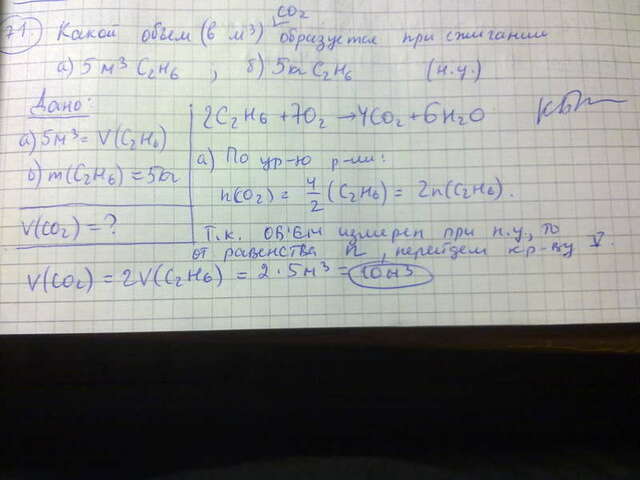 71 Какой объем (в м³) CO₂ образуется при сжигании
а) 5 м³ C₂H₆ ; б) 5кг C₂H₆ (н.у.)
Дано:
а) 5м³ = V(C₂H₆)
б) m(C₂H₆) = 5кг
V(CO₂) = ?
2C₂H₆ + 7O₂ → 4CO₂ + 6H₂O
а) По ур-ю р-ции:
n(CO₂) = 4/2 (C₂H₆) = 2n(C₂H₆).
Т.к. объём измерен при н.у., то
от равенства n, перейдем к р-ву V.
V(CO₂) = 2V(C₂H₆) = 2·5м³ = 10м³